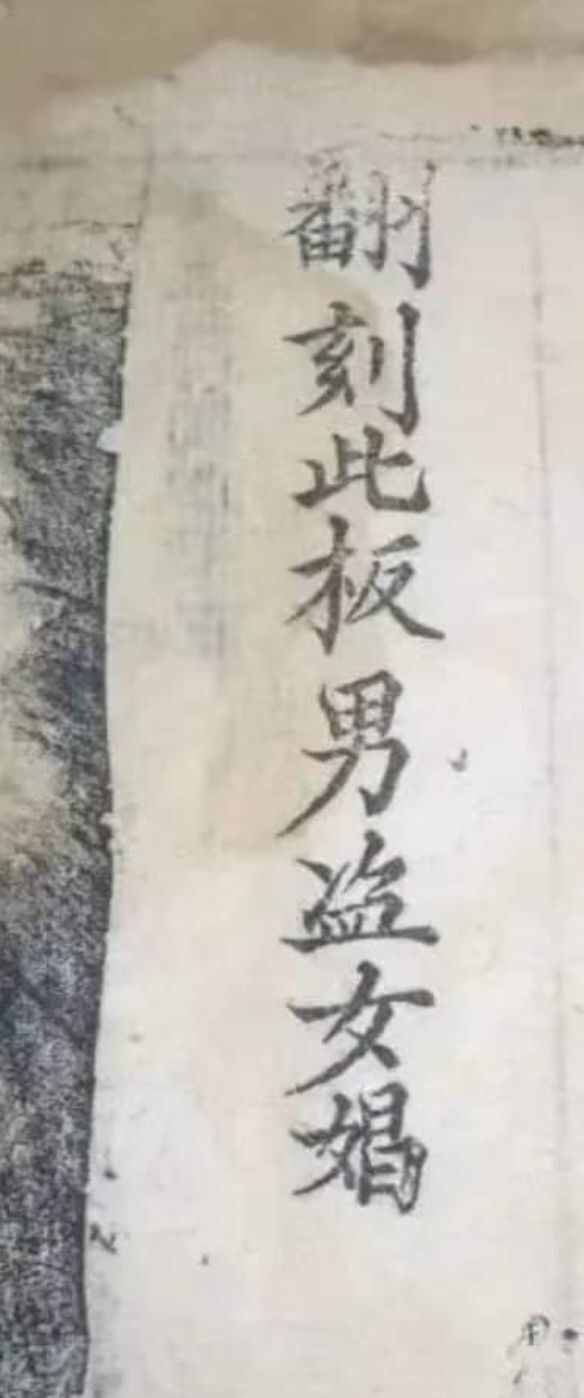 翻刻此板男盗女娼